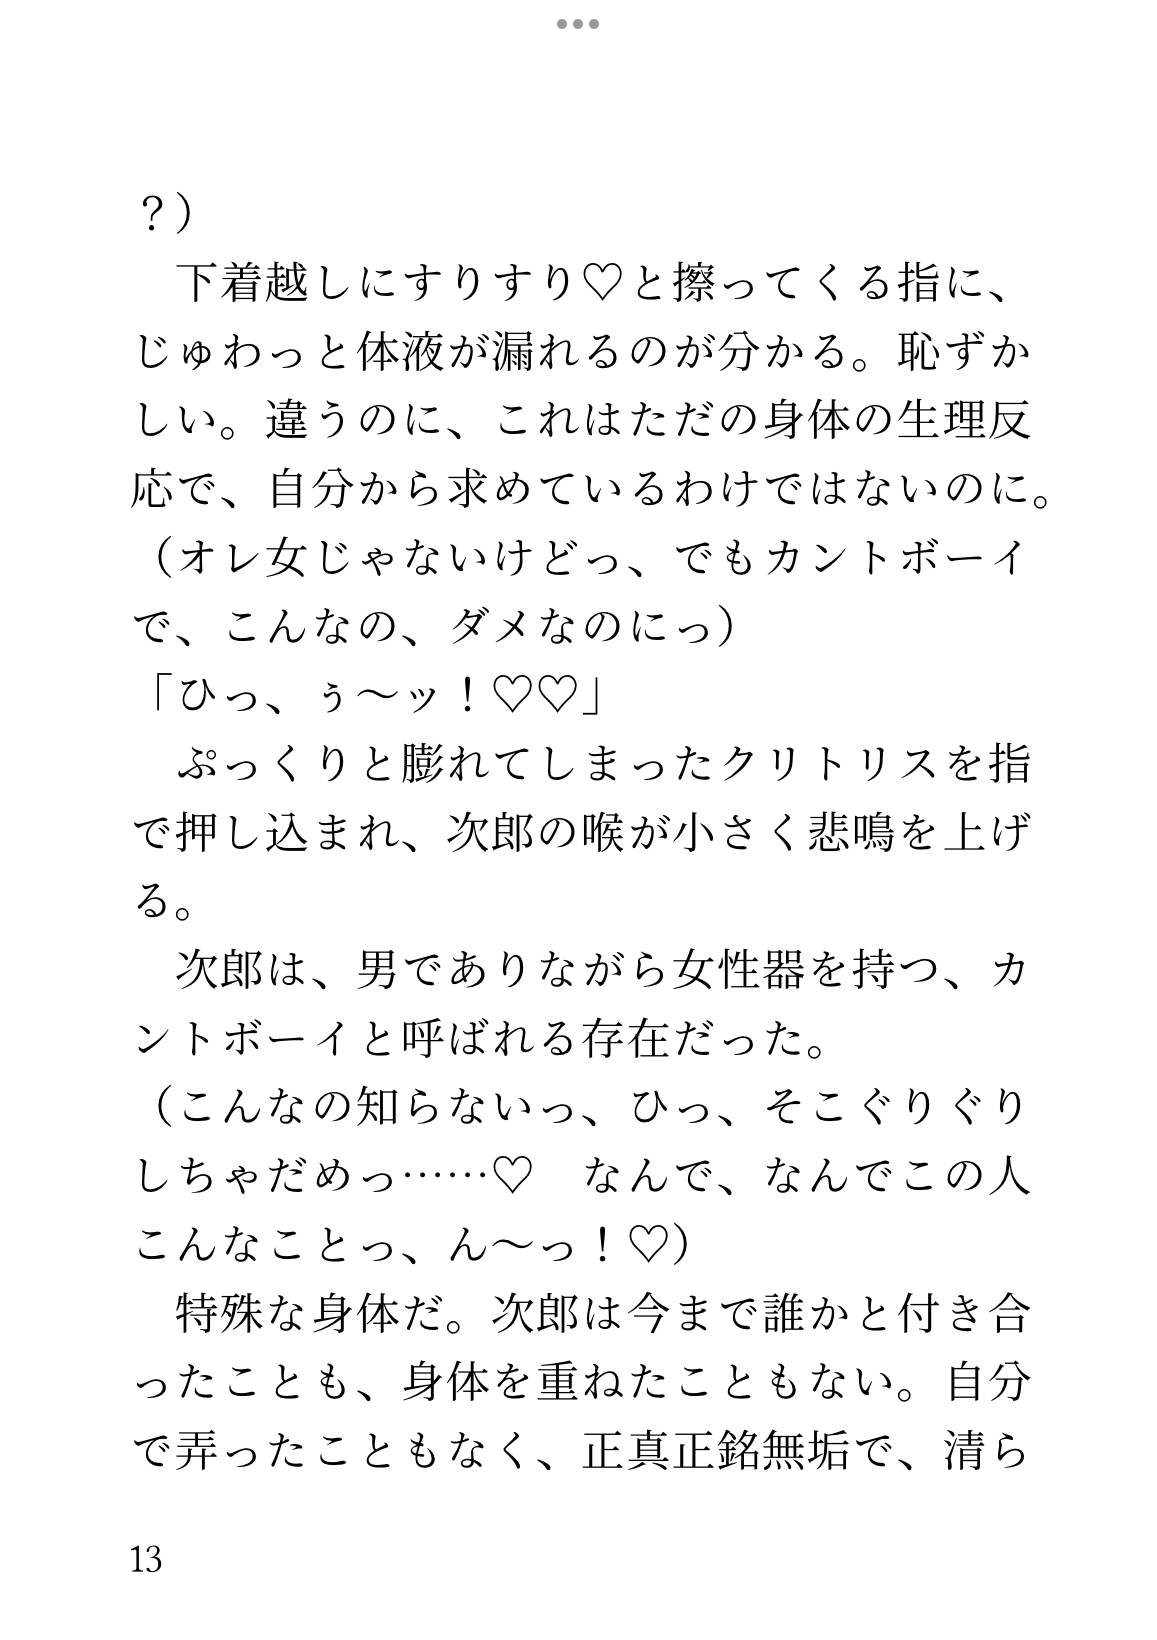 ？）
　下着越しにすりすり♡と擦ってくる指に、
じゅわっと体液が漏れるのが分かる。恥ずか
しい。違うのに、これはただの身体の生理反
応で、自分から求めているわけではないのに。
（オレ女じゃないけどっ、でもカントボーイ
で、こんなの、ダメなのにっ）
「ひっ、ぅ〜ッ！♡♡」
　ぷっくりと膨れてしまったクリトリスを指
で押し込まれ、次郎の喉が小さく悲鳴を上げ
る。
　次郎は、男でありながら女性器を持つ、カ
ントボーイと呼ばれる存在だった。
（こんなの知らないっ、ひっ、そこぐりぐり
しちゃだめっ……♡　なんで、なんでこの人
こんなことっ、ん〜っ！♡）
　特殊な身体だ。次郎は今まで誰かと付き合
ったことも、身体を重ねたこともない。自分
で弄ったこともなく、正真正銘無垢で、清ら
13